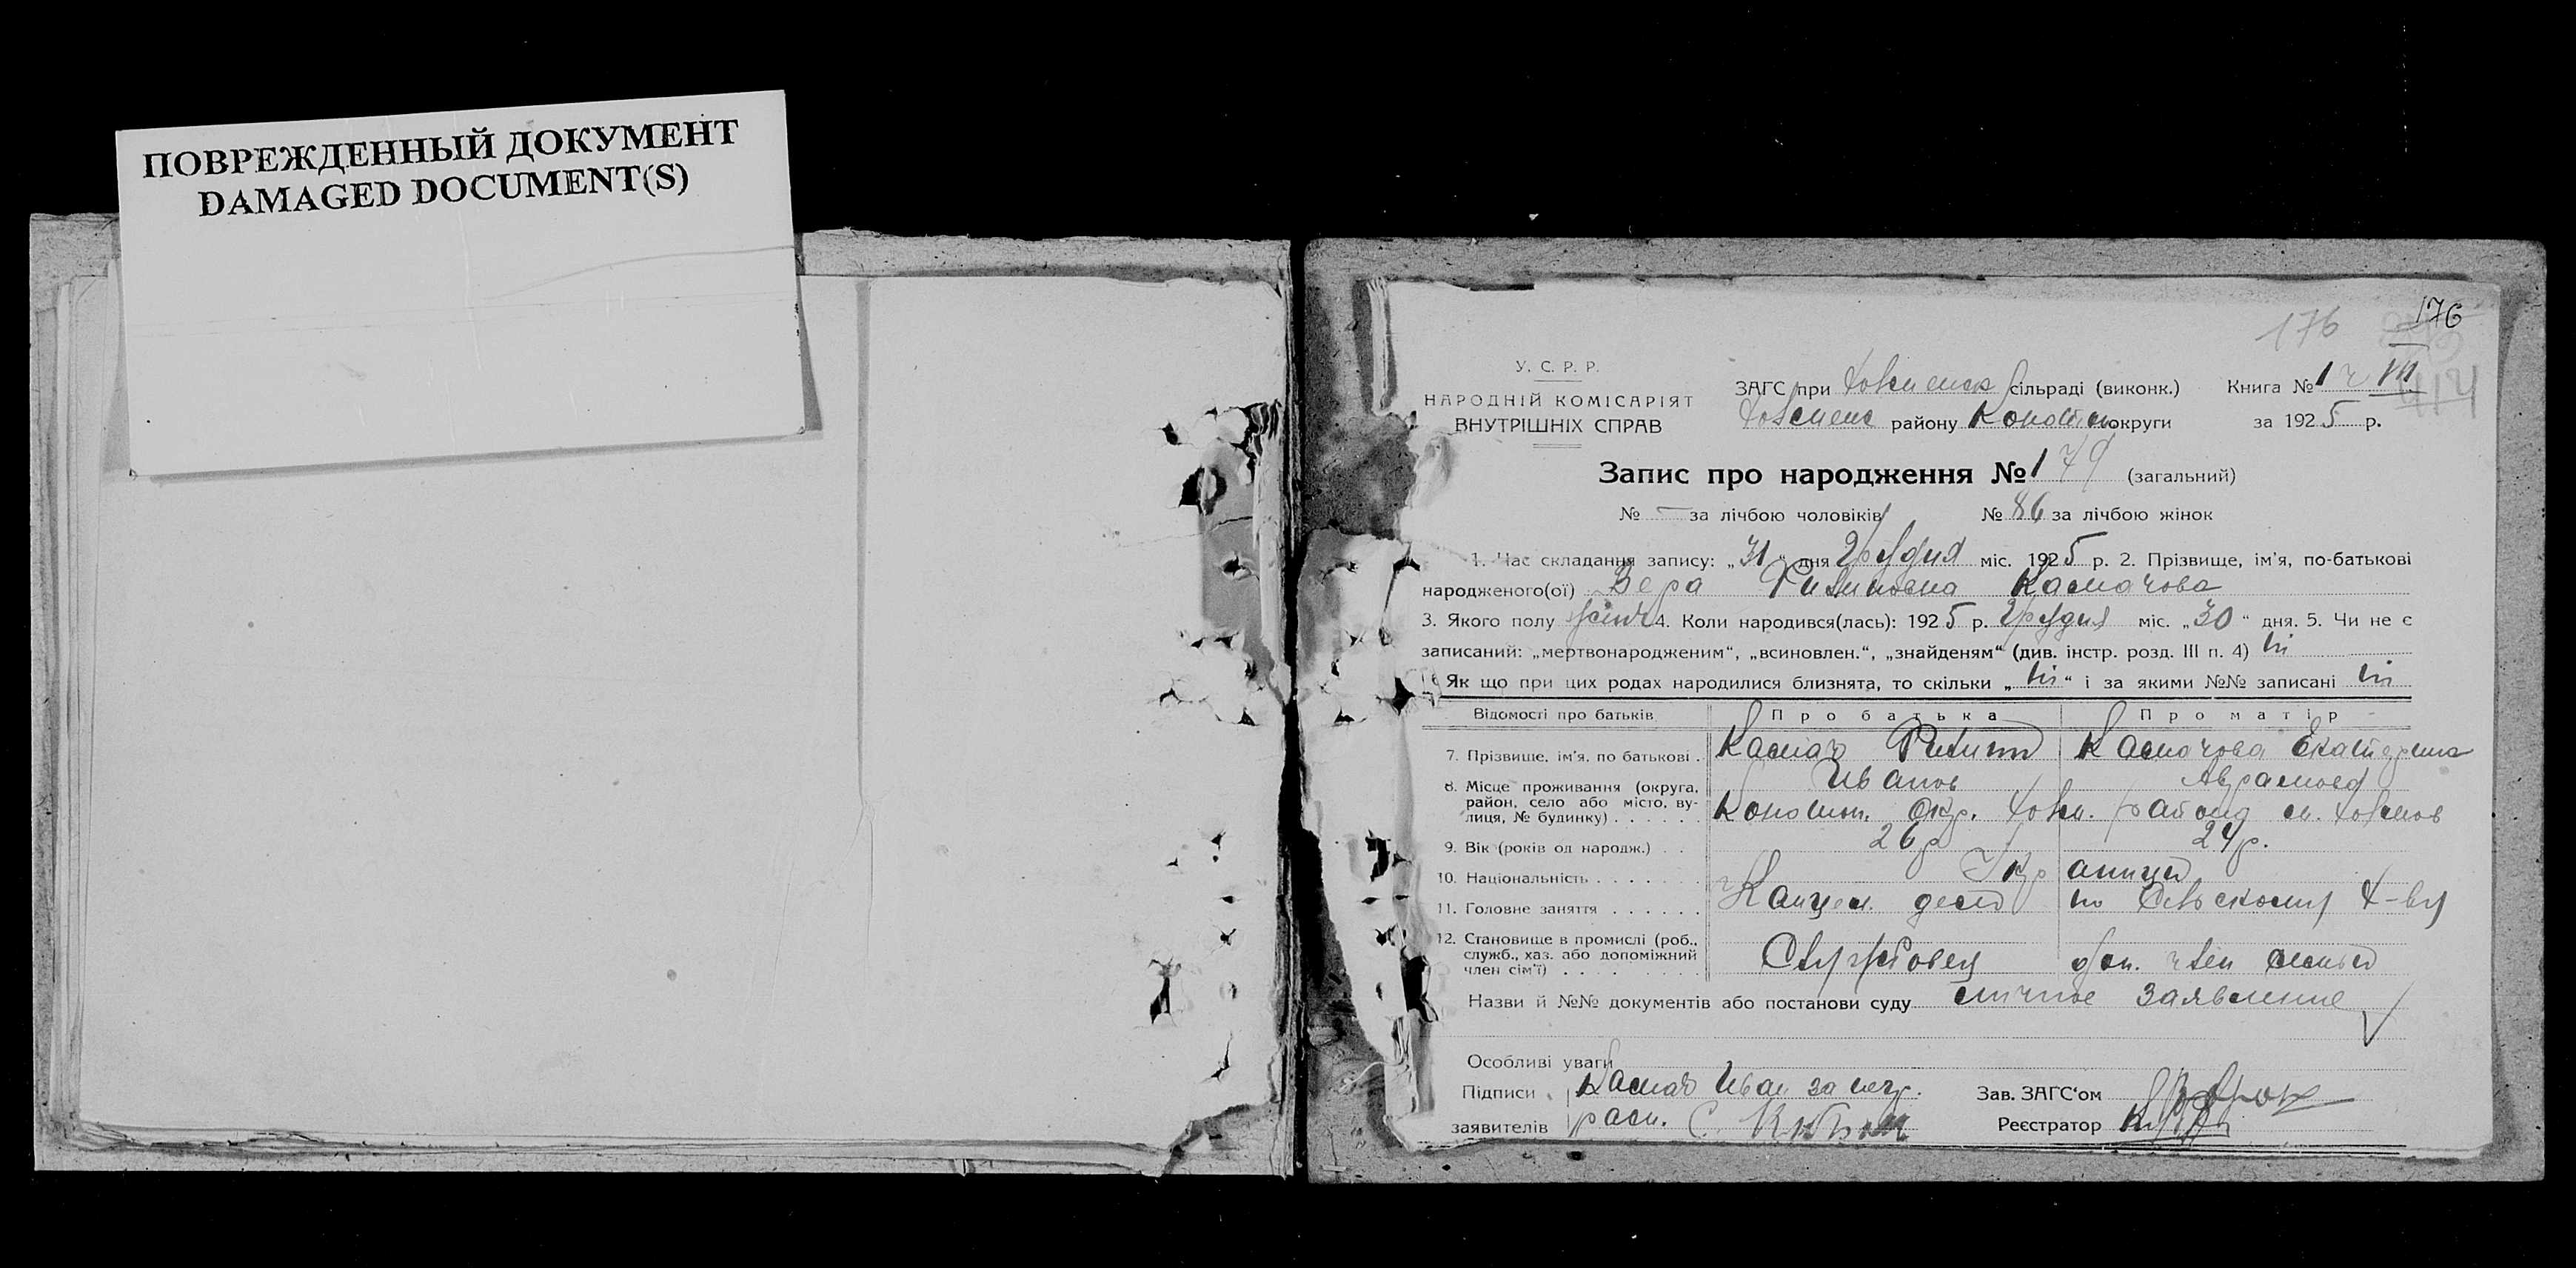 ПОВРЕЖДЕННЫЙ ДОКУМЕНТ
DAMAGED DOCUMENT(S)
176
176
У. С. Р. Р.
НАРОДНІЙ КОМІСАРІЯТ
ВНУТРІШНІХ СПРАВ
ЗАГС при сільраді (виконк.) Книга № 1
району Конотоп округи за 1925 р.
Запис про народження № 179 (загальний)
№ — за лічбою чоловіків № 86 за лічбою жінок
1. Час складання запису: „31“ дня Грудня міс. 1925 р. 2. Прізвище, ім'я, по-батькові
народженого(ої) Вера Филиповна Касмачова
3. Якого полу жіноч 4. Коли народився(лась): 1925 р. Грудня міс. „30“ дня. 5. Чи не є
записаний: „мертвонародженим“, „всиновлен.“, „знайденям“ (див. інстр. розд. III п. 4) ні
6. Як що при цих родах народилися близнята, то скільки „ні“ і за якими №№ записані ні
Відомості про батьків Про батька Про матір
7. Прізвище, ім'я, по батькові . Касмач Филип Иванов Касмачова Екатерина Аврамовд
8. Місце проживання (округа, район, село або місто, вулиця, № будинку) . . . . . Конотоп. Окр. района
9. Вік (років од народж.) . . 26 р 24 р.
10. Національність . . . . . . . Украинцы
11. Головне заняття . . . . . . Канцел. дело по Сельскому Х-ву
12. Становище в промислі (роб., служб., хаз. або допоміжний член сім'ї) . . . . . . . . Службовец доп. член семьи
Назви й №№ документів або постанови суду личное заявление
Особливі уваги
Підписи заявителів Касмач Иван за негр. расп. С.
Зав. ЗАГС'ом
Реєстратор